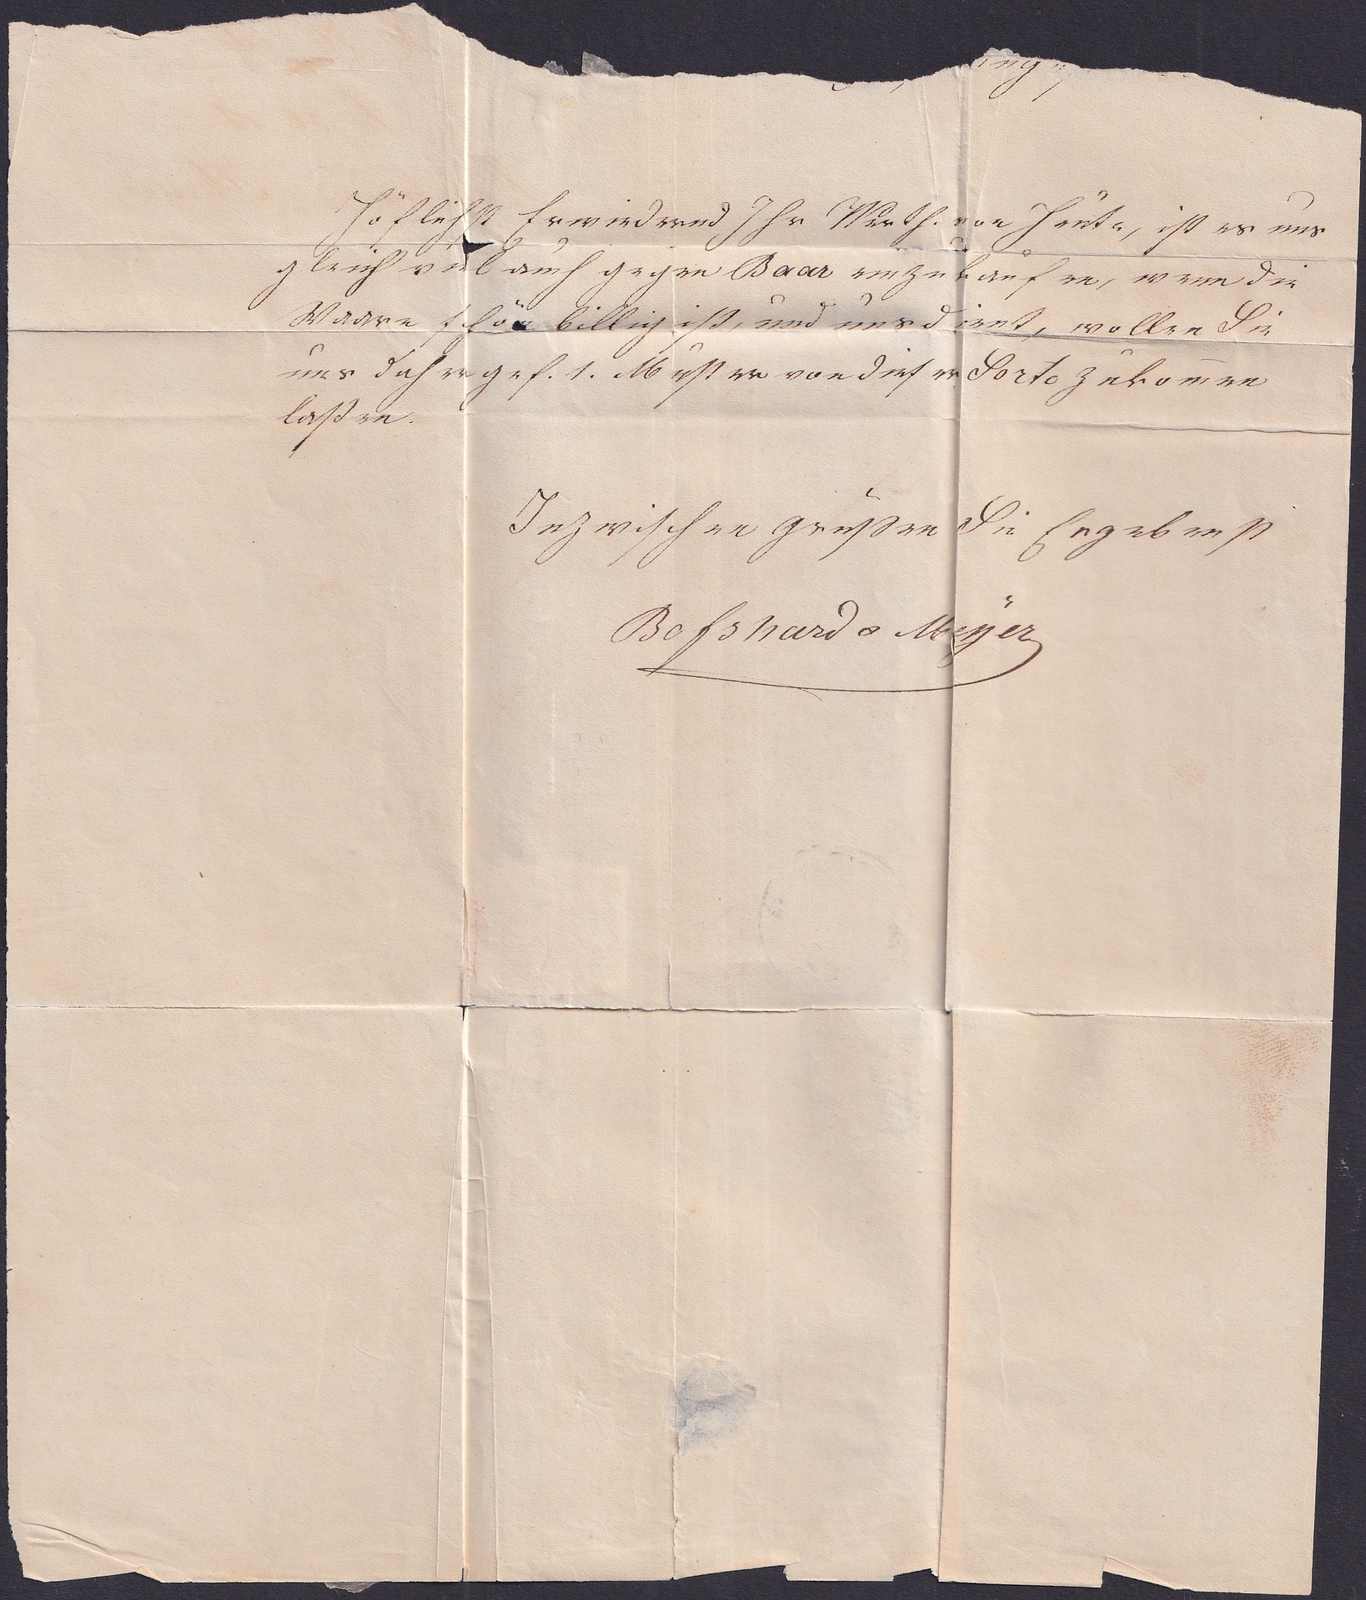 Höflichst Erwiedernd Ihr Werth. von Heute, ist es uns
gleich viel auch gegen Baar einzukaufen, wenn die
Waare schön billig ist, und uns dient, wollen Sie
uns daher gef. 1. Muster von dieser Sorte zukom̅en
laßen.
Inzwischen grüßen Sie Ergebenst
Boßhard & Meÿer